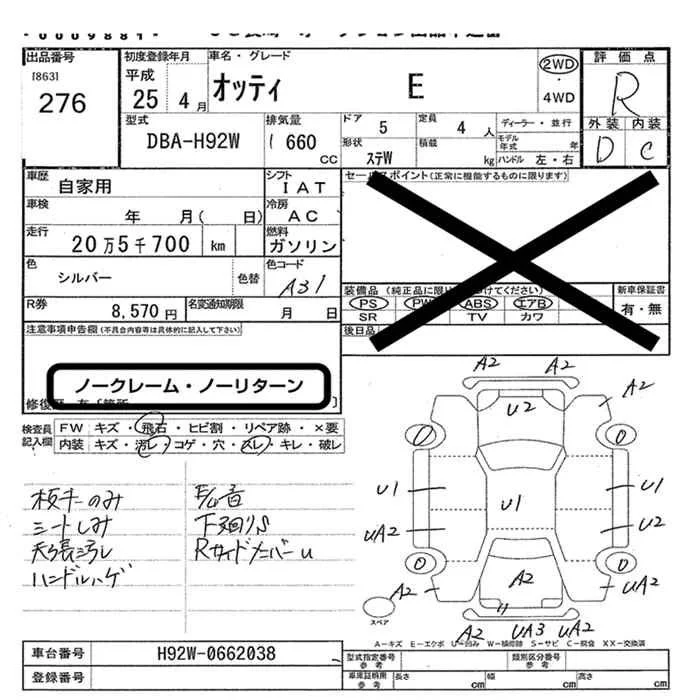 出品番号 [863] 276
初度登録年月 平成 25 4月
車名・グレード オッティ E
2WD ・ 4WD
評価点 R
外装 D 内装 C
型式 DBA-H92W
排気量 660 cc
ドア 5
定員 4 人
形状 ステW
積載 kg
ディーラー・並行
モデル年式 年
ハンドル 左・右
車歴 自家用
シフト I A T
車検 年 月( 日)
冷房 A C
走行 20万5千700 km
燃料 ガソリン
色 シルバー 色替
色コード A31
R券 8,570 円
名変通知期限 月 日
セールスポイント(正常に機能するものに限ります)
装備品
PS PW ABS エアB
SR TV カワ
後日品
新車保証書 有・無
注意事項申告欄(不具合内容等は具体的に記入して下さい)
ノークレーム・ノーリターン
検査員記入欄
FW キズ・飛石・ヒビ割・リペア跡・×要
内装 キズ・汚レ・コゲ・穴・スレ・キレ・破レ
板キーのみ
シートしみ
天張汚レ
ハンドルハゲ
E/G音
下廻りS
RサイドメンバーU
A2 A2
A2 U2
U1 U1 U1
UA2 U2
A2 A2 UA2
A2 UA3 UA2
スペア
A-キズ E-エクボ U-凹み W-補修跡 S-サビ C-腐食 XX-交換済
車台番号 H92W-0662038
登録番号
型式指定番号 参考
類別区分番号 参考
車庫証明用 参考 長さ cm 幅 cm 高さ cm